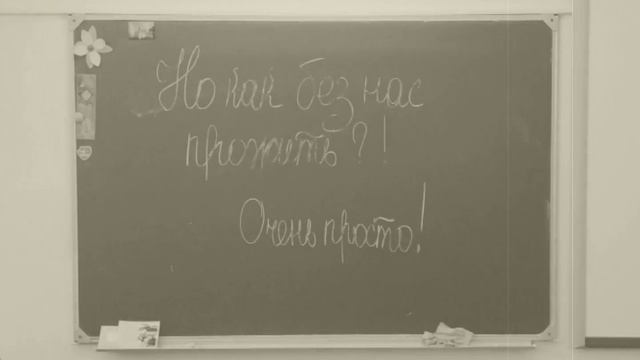 Но как без нас
прожить?!
Очень просто!